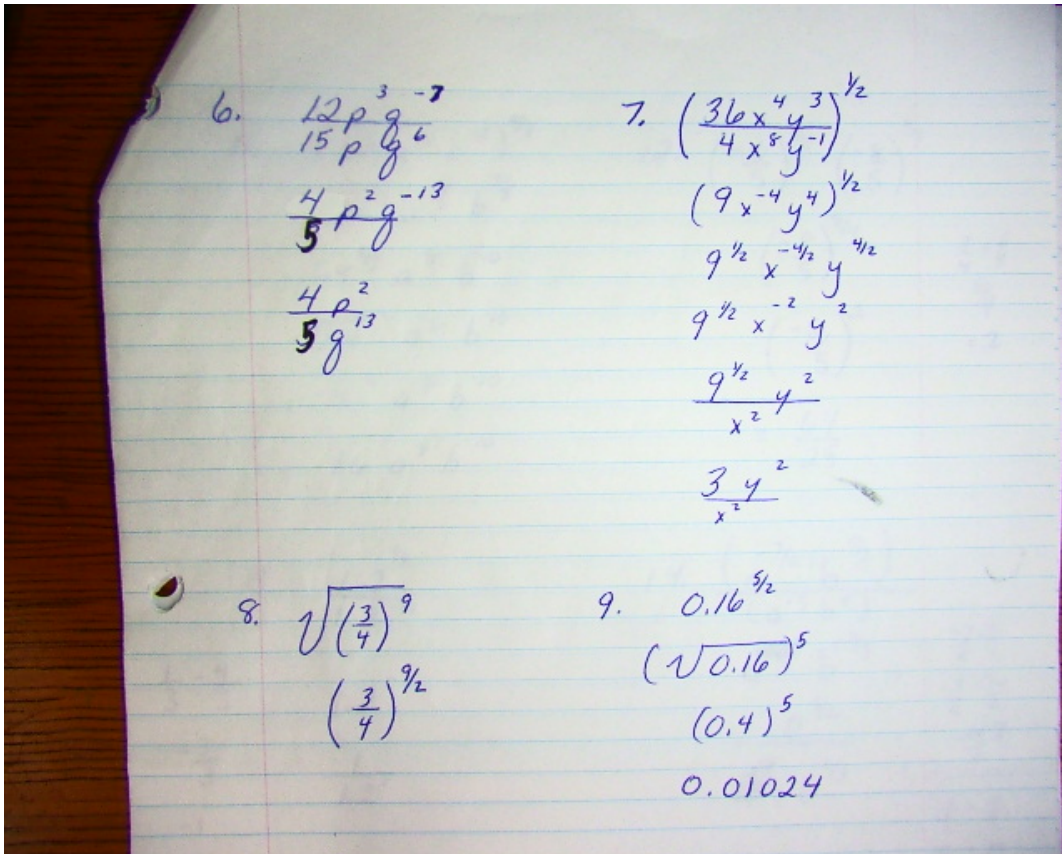 6. 12p³q⁻⁷
15pq⁶
4p²q⁻¹³
5
4p²
5q¹³
7. (36x⁴y³ / 4x⁸y⁻¹)^1/2
(9x⁻⁴y⁴)^1/2
9^1/2 x^-4/2 y^4/2
9^1/2 x⁻² y²
9^1/2 y²
x²
3y²
x²
8. √(3/4)⁹
(3/4)^9/2
9. 0.16^5/2
(√0.16)⁵
(0.4)⁵
0.01024